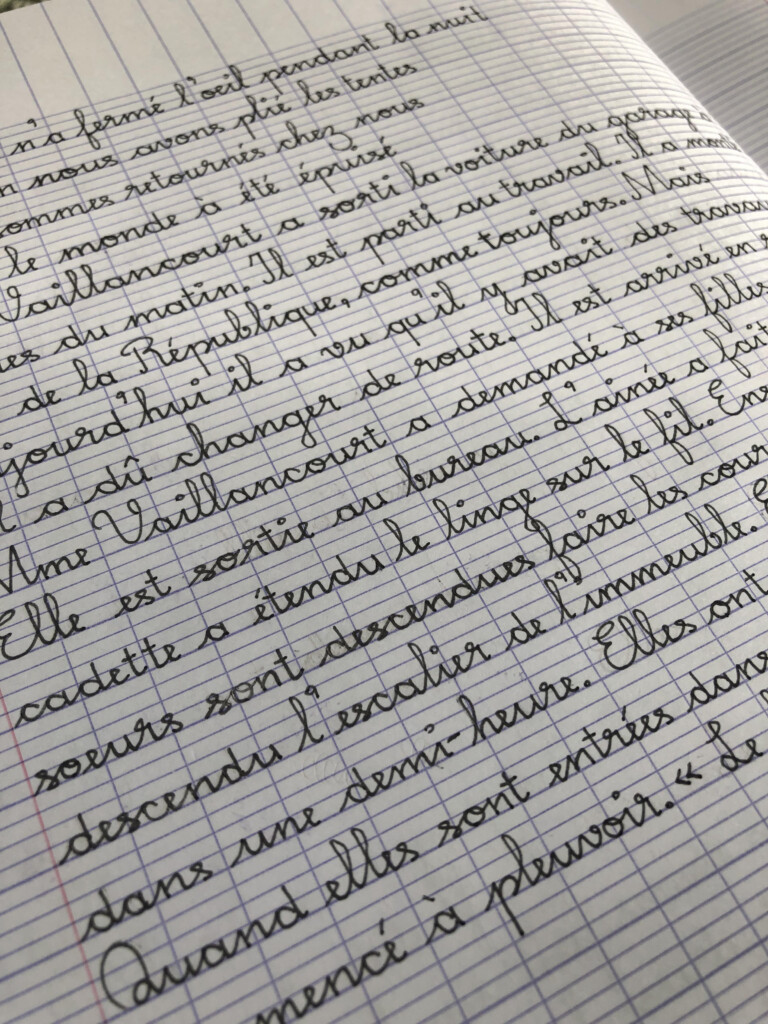 n'a fermé l'oeil pendant la nuit
nous avons plié les tentes
sommes retournés chez nous
le monde à été épuisé
Vaillancourt a sorti la voiture du garage
du matin. Il est parti au travail. Il a
de la République, comme toujours. Mais
il a vu qu'il y avait des
a dû changer de route. Il est arrivé en
Mme Vaillancourt a demandé à ses filles
Elle est sortie au bureau. L'ainée a fait
cadette a étendu le linge sur le fil.
soeurs sont descendues faire les
descendu l'escalier de l'immeuble.
dans une demi-heure. Elles ont
Quand elles sont entrées dans
à pleuvoir. « Le